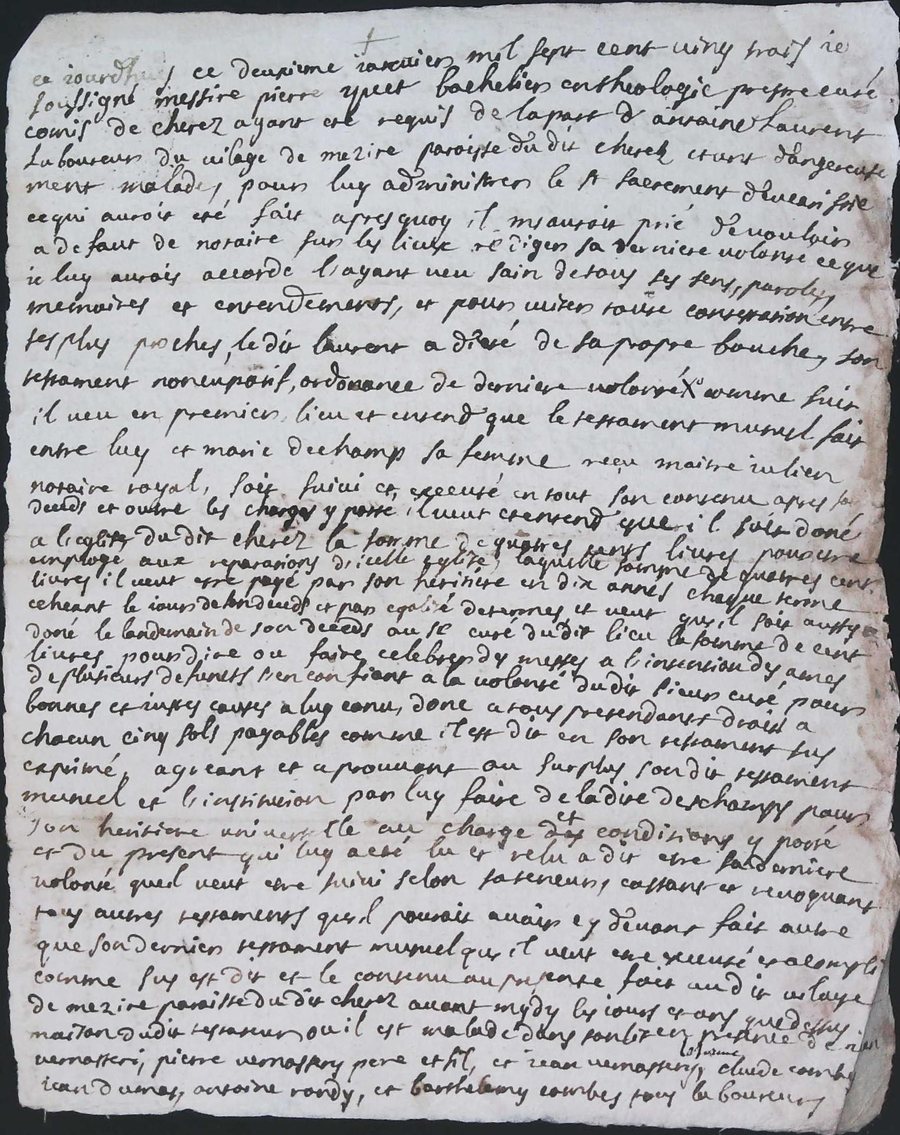 ce iourdhuy ce deuxieme ianvier mil sept cent ving trois ie
soussigné messire pierre yvert bachelier en theologie prestre curé
comis de cherez ayant ete requis de la part d' antoine laurent
laboureur du vilage de mezire paroisse du dit cherez etant dangereuse
ment malade, pour luy administrer le st sacrement d'eucaristie
ce qui auroit eté fait apres quoy il m'auroit prié de vouloir
a defaut de notaire sur les lieux rediger sa derniere volonté ce que
ie luy aurois accordé l'ayant veu sain de tous ses sens, paroles,
memoires et entendements, et pour eviter toute contestation entre
ses plus proches, le dit laurent a dicté de sa propre bouche, son
testament noncupatif, ordonance de derniere volonté comme suit
il veu en premier lieu et entend que le testament mutuel fait
entre luy et marie dechamp sa femme reçu maitre iulien
notaire royal, soit suivi et executé en tout son contenu apres sa
deceds et outre les charges y porté il veut et entend que il soit doné
a l'eglise du dit cherez la somme de quatres cents livres pour etre
employé aux reparations d'icelle eglise, laquelle somme de quatres cent
livres il veut etre payé par son heritiere en dix années chaque terme
echeant le iour de son deceds et par egalité de termes et veut qu'il soit aussy
doné le landemain de son deceds au sr curé du dit lieu la somme de cent
livres pour dire ou faire celebrer des messes a l'intention des ames
de plusieurs defunts s'en confiant a la volonté du dit sieur curé, pour
bonnes et iustes causes a luy conu, done a tous pretendants droit a
chacun cinq sols payables comme il est dit en son testament sus
exprimé, agreant et aprouvant au surplus son dit testament
mutuel et l'institution par luy faite de la dite deschamps pour
son heritiere universelle au charge et conditions y porté
et du present qui luy a eté lu et relu a dit etre sa derniere
volonté quil veut etre suivi selon sa teneur, cassant et revoquant
tous autres testaments qu'il pouroit avoir cy devant fait autre
que son dernier testament mutuel qu'il veut etre executé et acompli
comme sus est dit et le contenu au presente fait au dit vilage
de mezire paroisse du dit cherez avant mydy les iours et ans que dessus
maison du dit testateur ou il est malade dans son lit en presence de
vernassery, pierre vernassery pere et fil, et iean vernassery, claude combe
iean dumas, antoine rondy, et barthelemy combes tous laboureurs